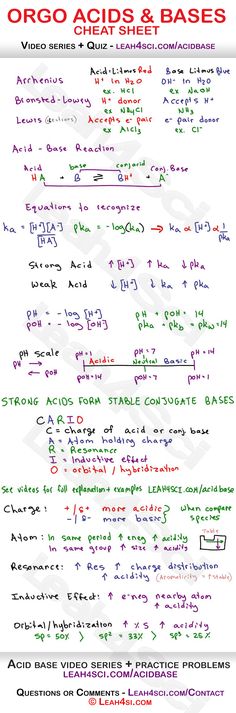 ORGO ACIDS & BASES
CHEAT SHEET
VIDEO SERIES + QUIZ - LEAH4SCI.COM/ACIDBASE
Acid-Litmus Red Base Litmus Blue
Arrhenius H⁺ in H₂O OH⁻ in H₂O
ex. HCl ex. NaOH
Bronsted-Lowry H⁺ donor Accepts H⁺
NH₃
Lewis (electrons) Accepts e⁻ pair e⁻ donor pair
ex. AlCl₃ ex. Cl⁻
Acid - Base Reaction
Acid base conj acid Conj. Base
HA + B ⇌ BH⁺ + A⁻
Equations to recognize
ka = [H⁺][A⁻] / [HA] pka = -log(ka) → ka ∝ [H⁺] ∝ 1/pka
Strong Acid ↑ [H⁺] ↑ ka ↓ pka
Weak Acid ↓ [H⁺] ↓ ka ↑ pka
pH = -log [H⁺] pH + pOH = 14
pOH = -log [OH⁻] pka + pkb = pkw = 14
pH scale pH=1 pH=7 pH=14
Acidic Neutral Basic
pOH=14 pOH=7 pOH=1
STRONG ACIDS FORM STABLE CONJUGATE BASES
CARIO
C = charge of acid or conj base
A = Atom holding charge
R = Resonance
I = Inductive effect
O = orbital / hybridization
See videos for full explanation + examples LEAH4SCI.com/acidbase
Charge: +/δ+ more acidic when compare
-/δ- more basic species
Table
Atom: In same period ↑ eneg ↑ acidity
In same group ↑ size ↑ acidity
Resonance: ↑ Res ↑ charge distribution
↑ acidity (Aromaticity = ↑ stable)
Inductive Effect: ↑ e-neg nearby atom
↑ acidity
Orbital/hybridization ↑ % S ↑ acidity
sp = 50% > sp² = 33% > sp³ = 25%
ACID BASE VIDEO SERIES + PRACTICE PROBLEMS
LEAH4SCI.COM/ACIDBASE
QUESTIONS OR COMMENTS - LEAH4SCI.COM/CONTACT
© LEAH4SCI.COM